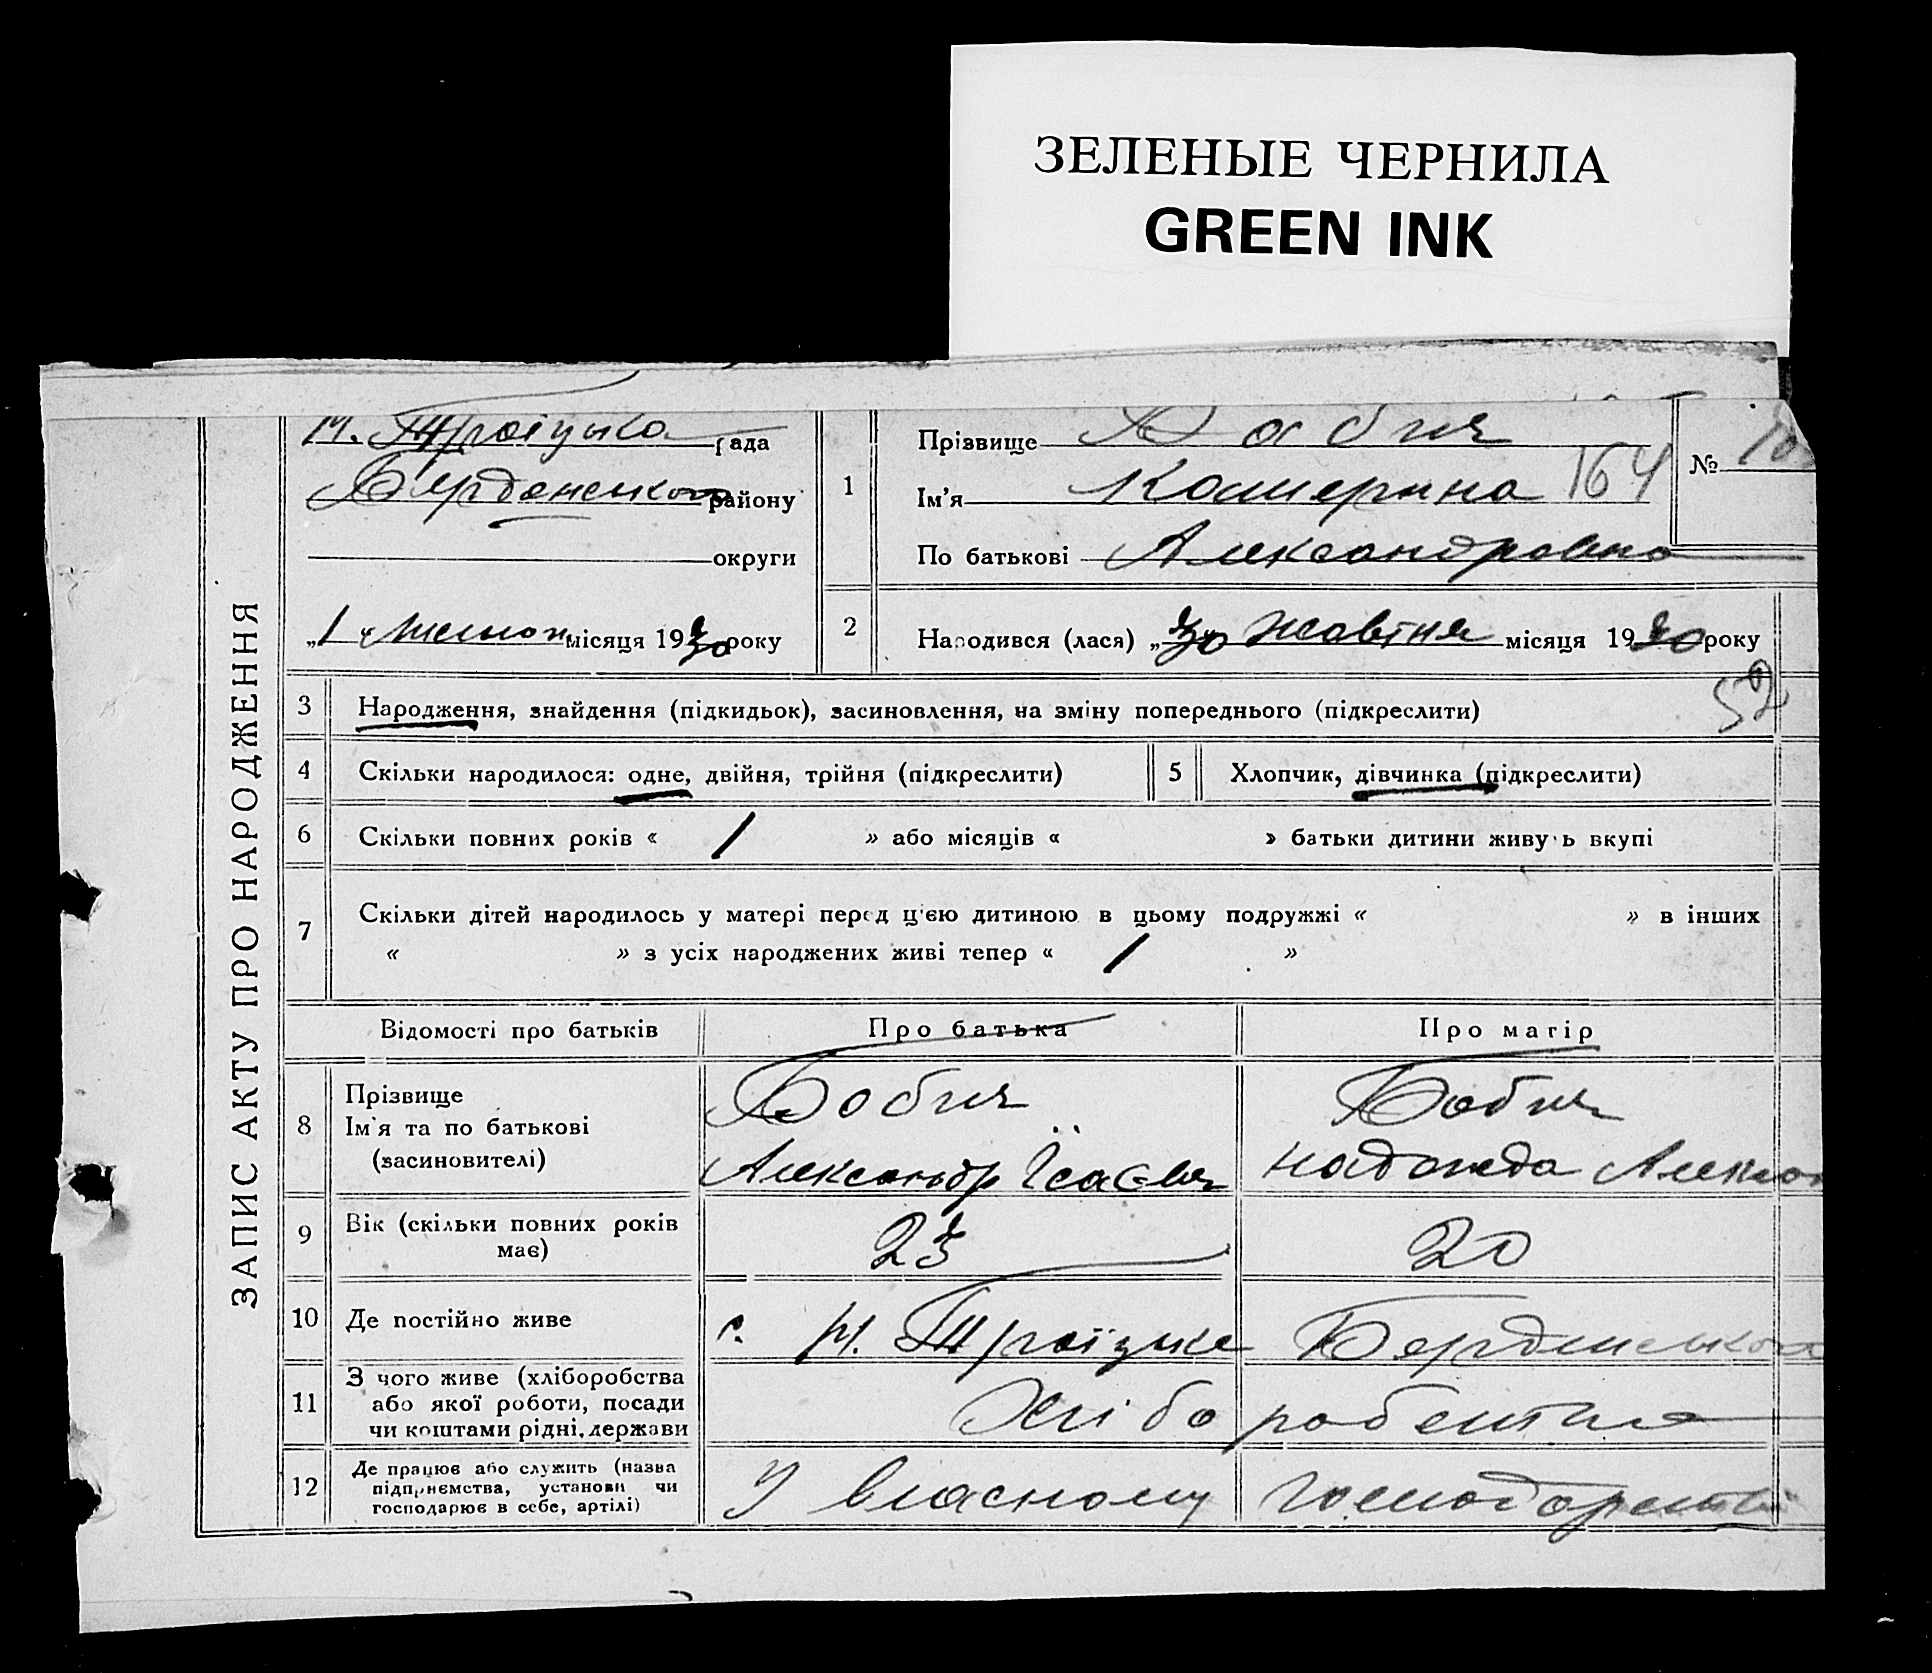 ЗЕЛЕНЫЕ ЧЕРНИЛА
GREEN INK
ЗАПИС АКТУ ПРО НАРОДЖЕННЯ
Н. Троїцька рада
Бердянського району
округи
„1“ місяця 1930 року
1
Прізвище Бабич
Ім'я Катерина 164
По батькові Александровна
№
2
Народився (лася) „30“ жовтня місяця 1930 року
3 Народження, знайдення (підкидьок), засиновлення, на зміну попереднього (підкреслити)
4 Скільки народилося: одне, двійня, трійня (підкреслити)
5 Хлопчик, дівчинка (підкреслити)
6 Скільки повних років « / » або місяців « » батьки дитини живуть вкупі
7 Скільки дітей народилось у матері перед ц'єю дитиною в цьому подружжі « » в інших
« » з усіх народжених живі тепер « / »
Відомості про батьків Про батька Про матір
8 Прізвище
Ім'я та по батькові
(засиновителі)
Бобич
Александр Ісаєвич
Бабич
Надежда
9 Вік (скільки повних років
має)
23
20
10 Де постійно живе с. Н. Троїцьке Бердянського
11 З чого живе (хліборобства
або якої роботи, посади
чи коштами рідні, держави
Хліборобством
12 Де працює або служить (назва
підприємства, установи чи
господарює в себе, артілі)
У власному господарстві